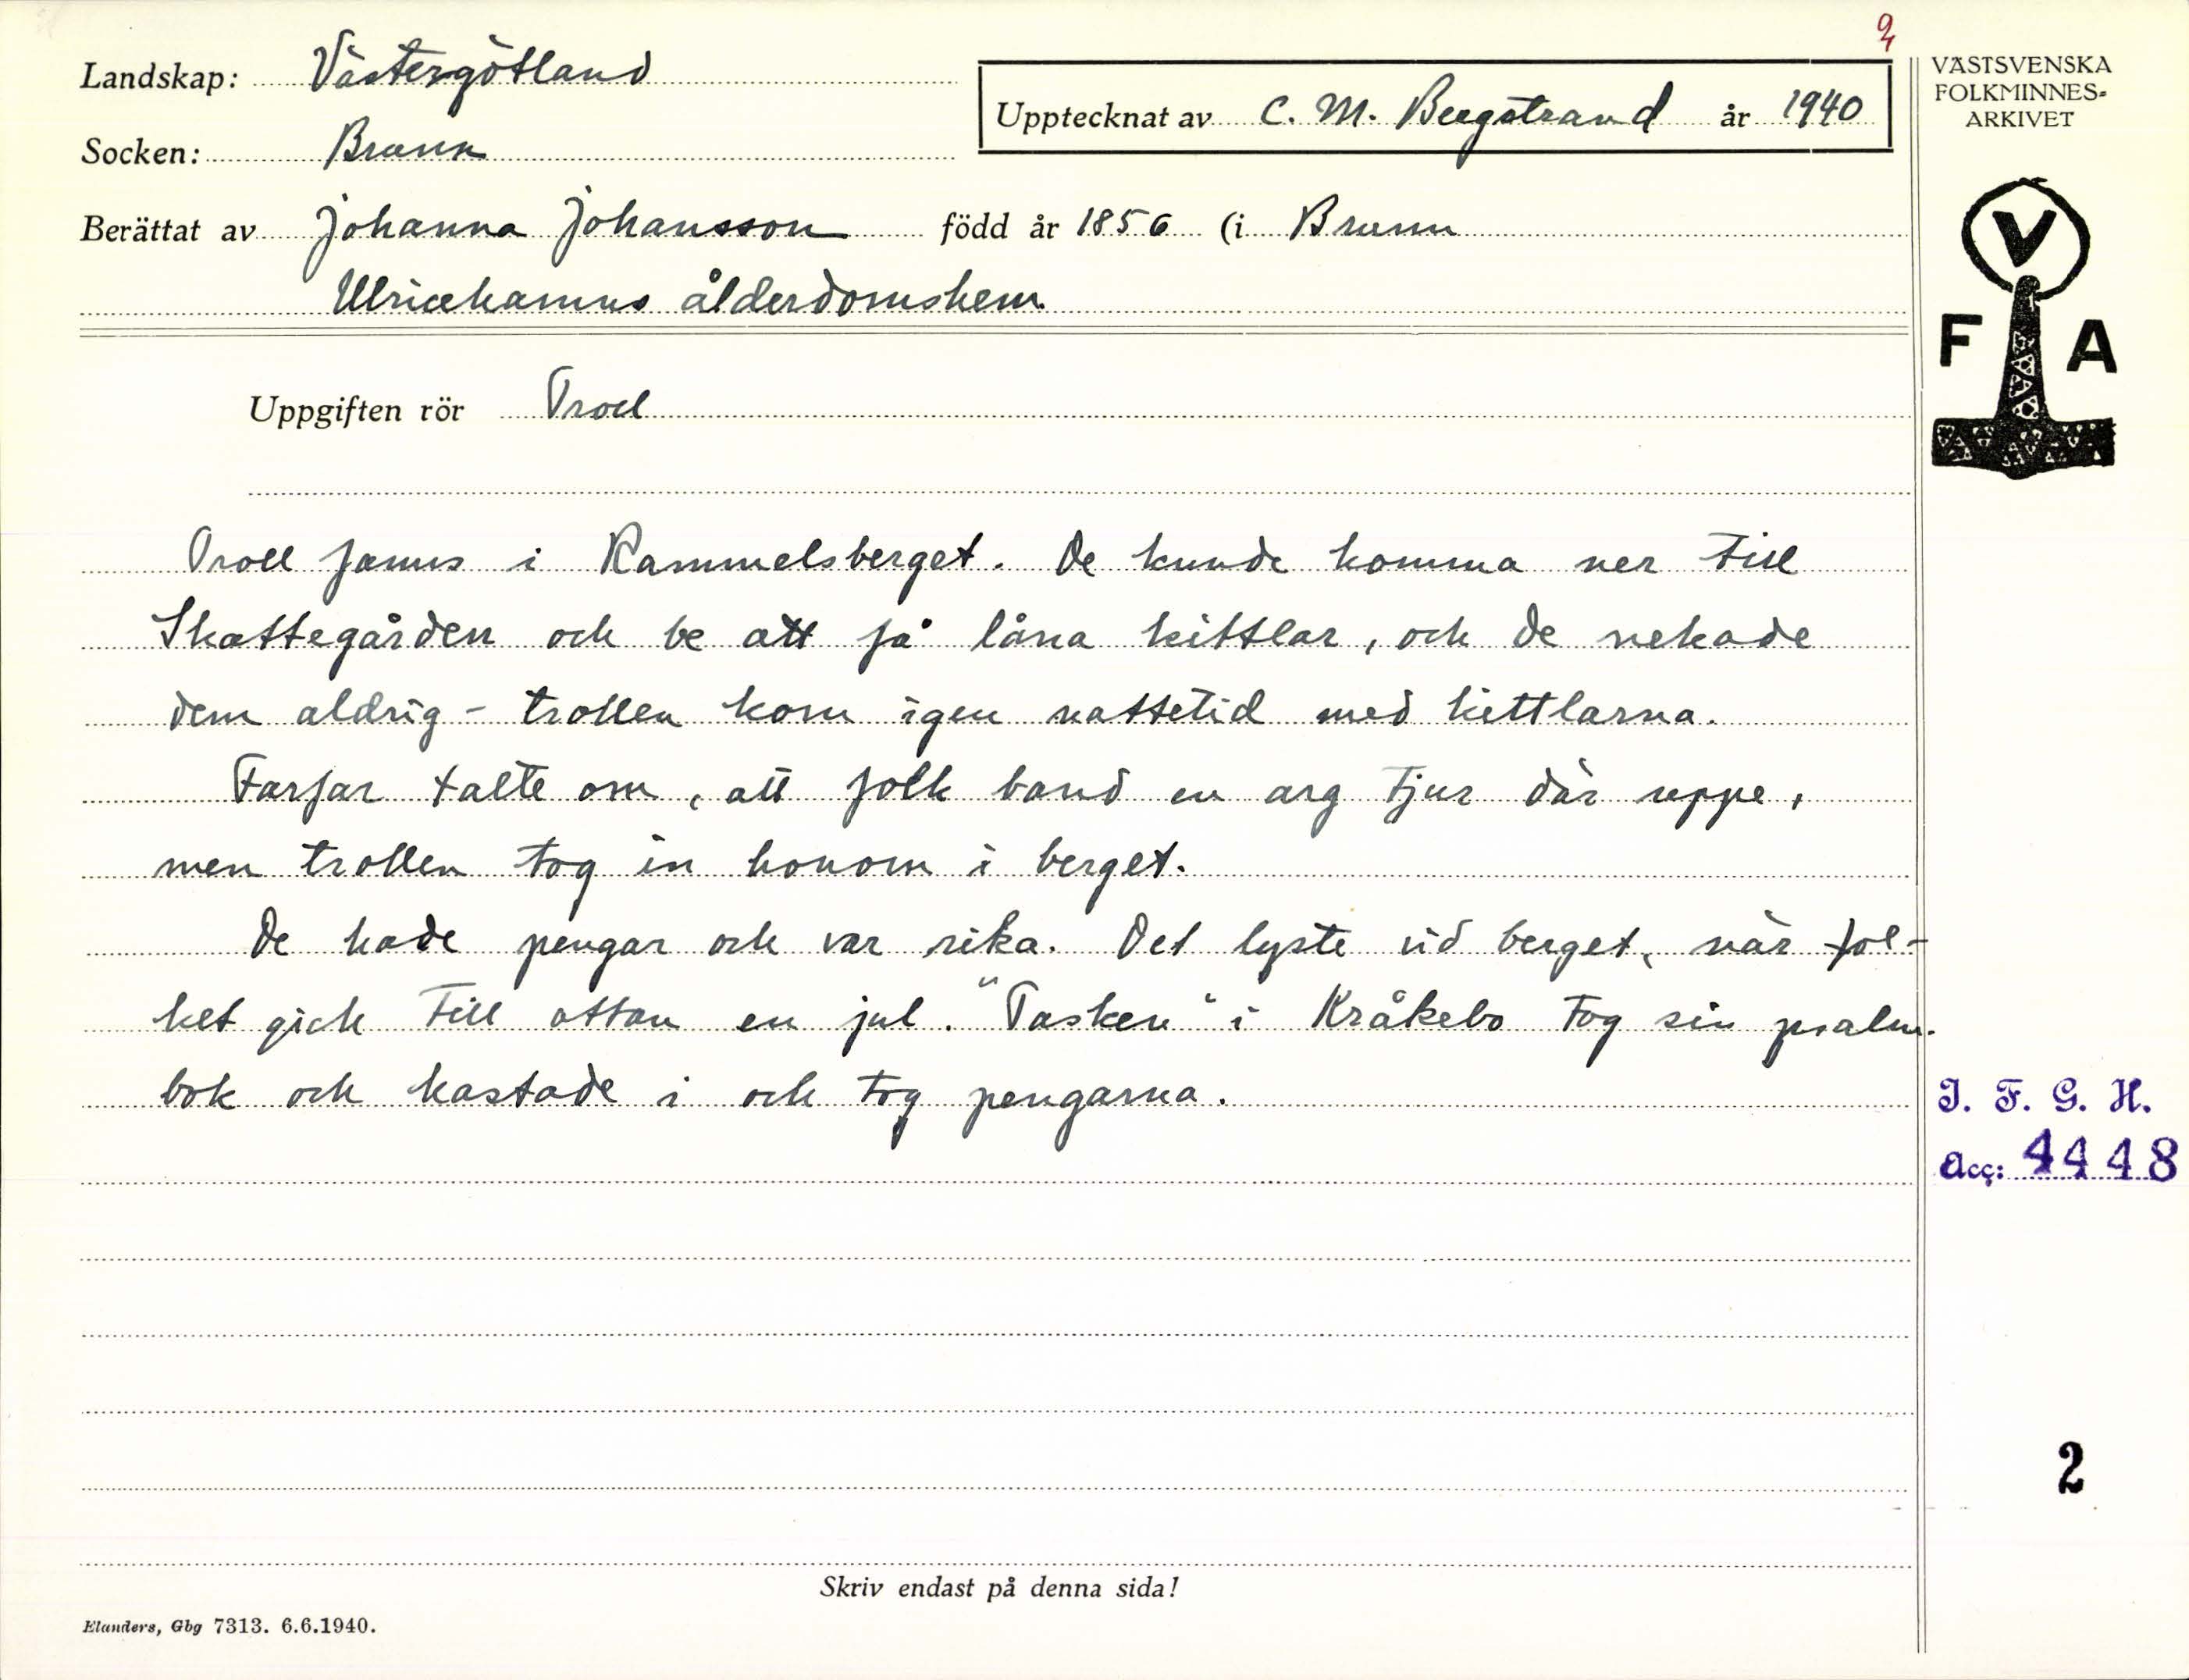 2
Landskap: Västergötland
Upptecknat av C. M. Bergstrand år 1940
VÄSTSVENSKA
FOLKMINNES-
ARKIVET
Socken: Brunn
Berättat av Johanna Johansson född år 1856 (i Brunn
Ulricehamns ålderdomshem
V
F A
Uppgiften rör Troll
Troll fanns i Rammelsberget. De kunde komma ner till
Skattegården och be att få låna kittlar, och de nekade
dem aldrig - trollen kom igen nattetid med kittlarna.
Farfar talte om, att folk band en arg tjur där uppe,
men trollen tog in honom i berget.
De hade pengar och var rika. Det lyste vid berget, när fol-
ket gick till ottan en jul. "Tasken" i Kråkebo tog sin psalm-
bok och kastade i och tog pengarna.
I. F. G. H.
Acc: 4448
2
Skriv endast på denna sida!
Elanders, Gbg 7313. 6.6.1940.